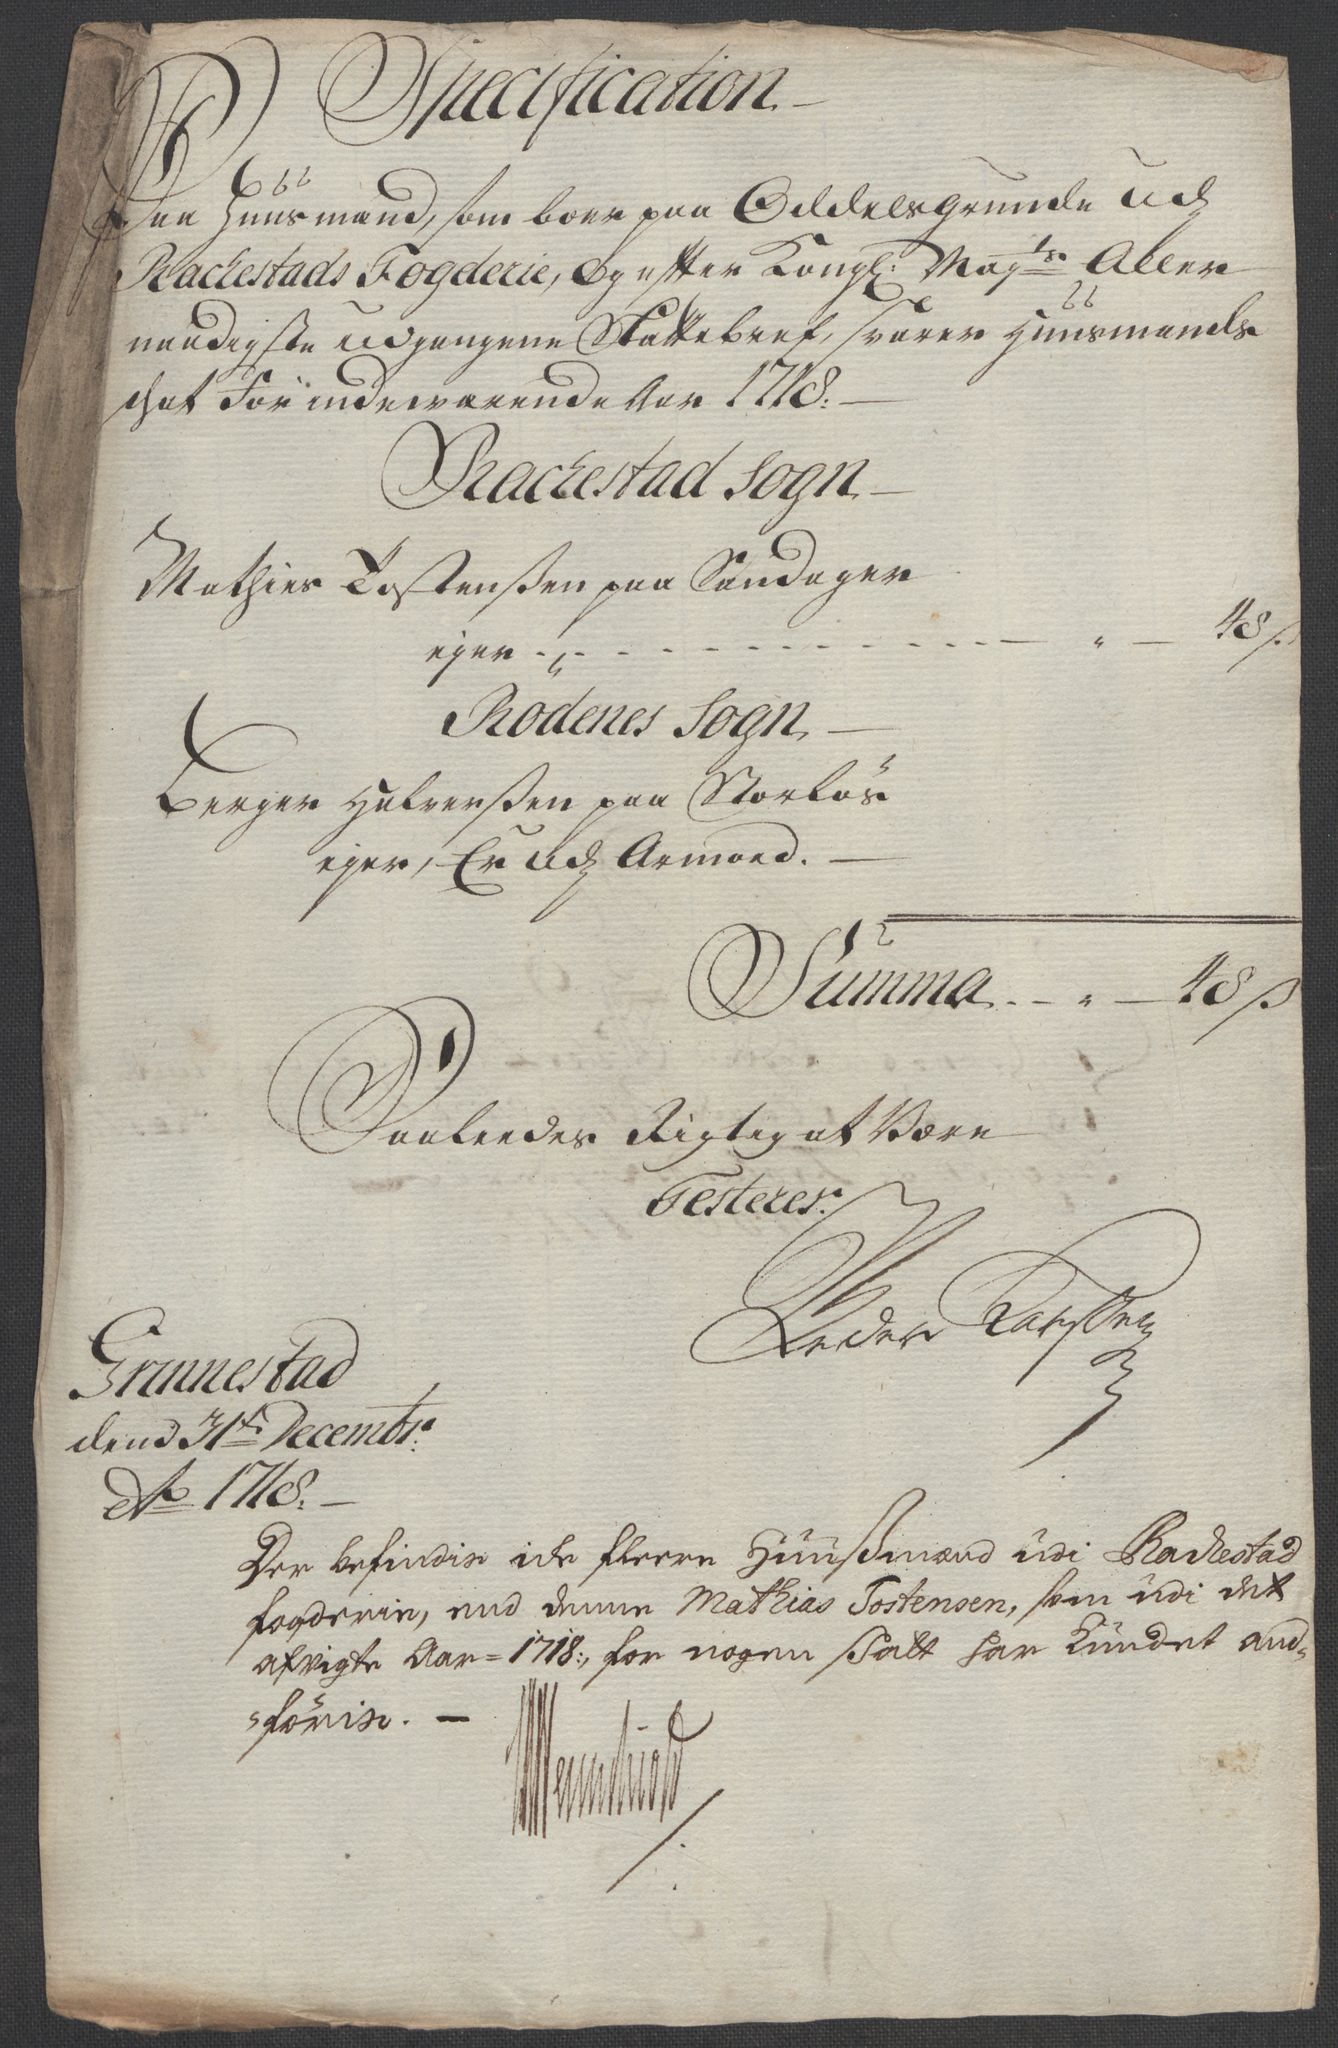 Specification
Paa Huusmænd, som boer paa Oddelsgrunde udj
Rachestads Fogderie, Og efter Kongl: Mayts Aller
naadigste udgangene Skattebref, svarer Huusmands
schat For indeværende Aar 1718.
Rachestad Sogn
Mathies Tostensen paa Sandager
eger - 48 s
Rödenes Sogn
Berger Halversen paa Storløs
eger, Er udj Armoed.
Summa - 48 s
Saaleedes Rigtig at Være
Testerer
Peder Karssen
Grinnestad
dend 31te Decembr:
Ao 1718.
Der befindis icke fleere Huusmænd udi Rackestad
fogderie, end denne Mathias Tostensen, som udi det
afvigte Aar 1718, for nogen Skatt har kundet and-
føris.